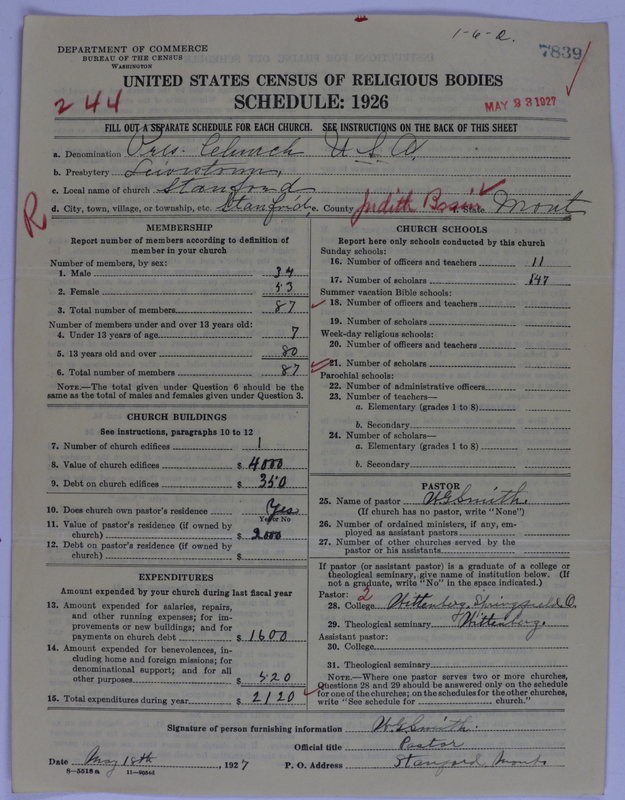 1-6-a.
7839
DEPARTMENT OF COMMERCE
BUREAU OF THE CENSUS
WASHINGTON
UNITED STATES CENSUS OF RELIGIOUS BODIES
SCHEDULE: 1926
244
MAY 23 1927
FILL OUT A SEPARATE SCHEDULE FOR EACH CHURCH. SEE INSTRUCTIONS ON THE BACK OF THIS SHEET
a. Denomination Pres. Church U.S.A.
b. Presbytery Lewistown,
c. Local name of church Stanford
d. City, town, village, or township, etc. Stanford e. County Judith Basin f. State Mont
R
MEMBERSHIP
Report number of members according to definition of
member in your church
Number of members, by sex:
1. Male 34
2. Female 53
3. Total number of members 87
Number of members under and over 13 years old:
4. Under 13 years of age 7
5. 13 years old and over 80
6. Total number of members 87
NOTE.—The total given under Question 6 should be
same as the total of males and females given under Question 3.
CHURCH BUILDINGS
See instructions, paragraphs 10 to 12
7. Number of church edifices 1
8. Value of church edifices $ 4000
9. Debt on church edifices $ 350
10. Does church own pastor's residence? Yes
Yes or No
11. Value of pastor's residence (if owned by
church) $ 2000
12. Debt on pastor's residence (if owned by
church) $
EXPENDITURES
Amount expended by your church during last fiscal year
13. Amount expended for salaries, repairs,
and other running expenses; for im-
provements or new buildings; and for
payments on church debt $ 1600
14. Amount expended for benevolences, in-
cluding home and foreign missions; for
denominational support; and for all
other purposes $ 520
15. Total expenditures during year $ 2120
CHURCH SCHOOLS
Report here only schools conducted by this church
Sunday schools:
16. Number of officers and teachers 11
17. Number of scholars 147
Summer vacation Bible schools:
18. Number of officers and teachers
19. Number of scholars
Week-day religious schools:
20. Number of officers and teachers
21. Number of scholars
Parochial schools:
22. Number of administrative officers
23. Number of teachers—
a. Elementary (grades 1 to 8)
b. Secondary
24. Number of scholars—
a. Elementary (grades 1 to 8)
b. Secondary
PASTOR
25. Name of pastor W G Smith.
(If church has no pastor, write "None")
26. Number of ordained ministers, if any, em-
ployed as assistant pastors
27. Number of other churches served by the
pastor or his assistants
If pastor (or assistant pastor) is a graduate of a college or
theological seminary, give name of institution below. (If
not a graduate, write "No" in the space indicated.)
Pastor: 2
28. College Wittenberg, Springfield, O.
29. Theological seminary Wittenberg.
Assistant pastor:
30. College
31. Theological seminary
NOTE.—Where one pastor serves two or more churches,
Questions 28 and 29 should be answered only on the schedule
for one of the churches; on the schedules for the other churches,
write "See schedule for church."
Signature of person furnishing information W G Smith.
Official title Pastor
Date May 18th, 1927 P. O. Address Stanford Mont.
8-5518a